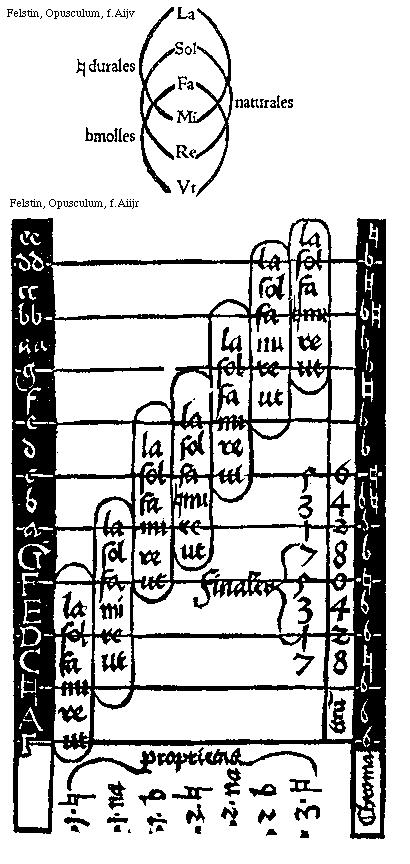 Felstin, Opusculum, f.Aijv
La
Sol
♮ durales
Fa
naturales
Mi
bmolles
Re
Vt
Felstin, Opusculum, f.Aiijr
ee la ♮
dd la sol b
cc sol fa ♮
bb fa ♮mi b♮
aa la mi re b
g sol re ut b
f fa ut ♮
e la mi b
d la sol re b
c sol fa ut 5 6 ♮
b fa ♮mi 3 4 b♮
a la mi re 1 2 b
G sol re ut 7 8 b
F fa ut finales 5 6
E la mi 3 4 b
D sol re 1 2 b
C fa ut 7 8 ♮
mi b
A re b
Γ ut b
1·♮ 1·na 1·b 2·♮ 2·na 2 b 3·♮
Chroma